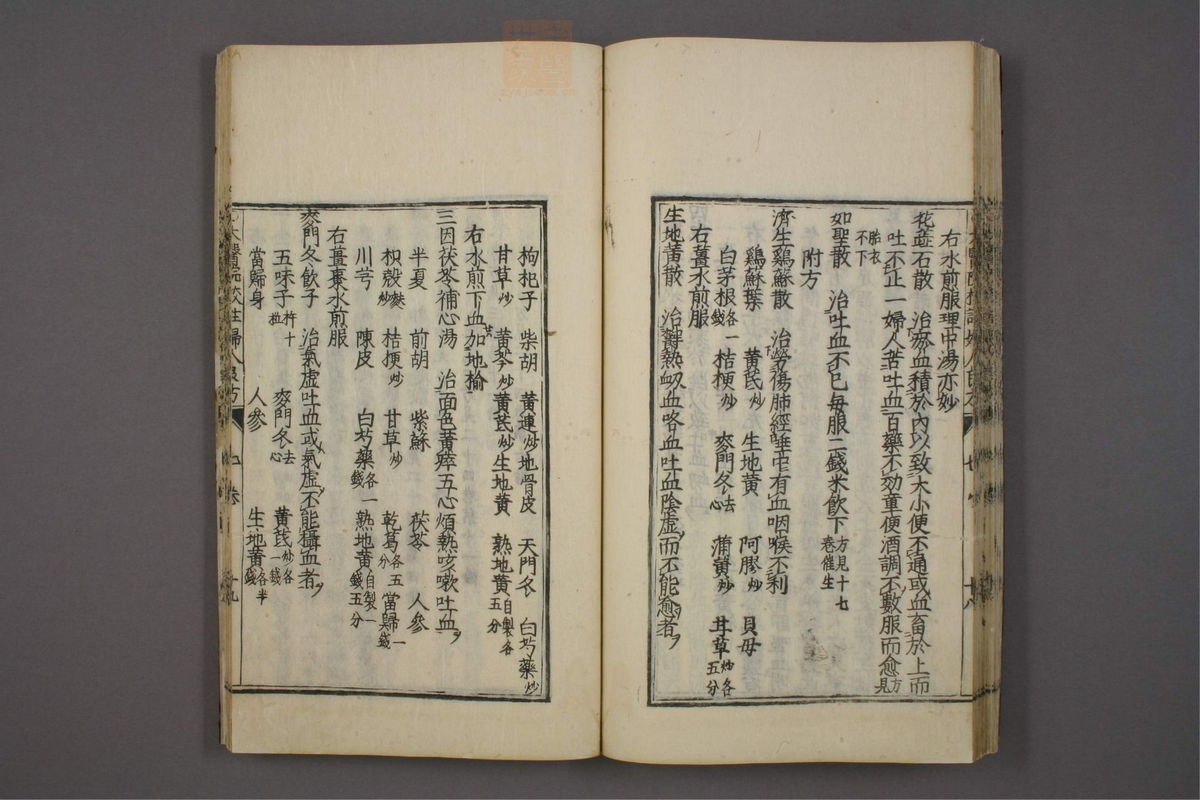 右水煎服理中湯亦妙
花蘂石散　治瘀血積於內以致大小便不通或血畜於上而
吐不止一婦人苦吐血百藥不効童便酒調不數服而愈方見
胎衣不下
如聖散　治吐血不已每服二錢米飲下方見十七卷催生
附方
濟生鷄蘇散　治勞傷肺經唾中有血咽喉不利
鷄蘇葉　黃芪炒　生地黃　阿膠炒　貝母
白茅根各一錢　桔梗炒　麥門冬去心　蒲黃炒　甘草炒各五分
右薑水煎服
生地黃散　治鬱熱衂血咯血吐血陰虛而不能愈者
枸杞子　柴胡　黃連炒　地骨皮　天門冬　白芍藥炒
甘草炒　黃芩炒　黃芪炒　生地黃　熟地黃自製各五分
右水煎下血加地榆
三因茯苓補心湯　治面色黃瘁五心煩熱咳嗽吐血
半夏　前胡　紫蘇　茯苓　人參
枳殼麩炒　桔梗炒　甘草炒　乾葛各五分　當歸一錢
川芎　陳皮　白芍藥各一錢　熟地黃自製一錢五分
右薑棗水煎服
麥門冬飲子　治氣虛吐血或氣虛不能攝血者
五味子杵十粒　麥門冬去心　黃芪炒各一錢
當歸身　人參　生地黃各半錢